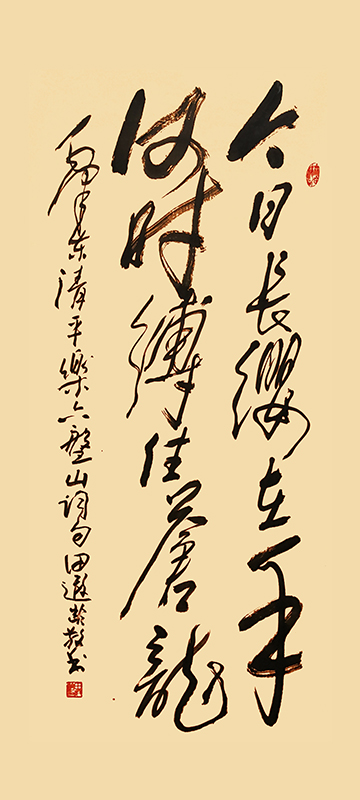 今日長纓在手
何时縛住蒼龍
毛澤東清平樂六盤山詞句田齡敬书